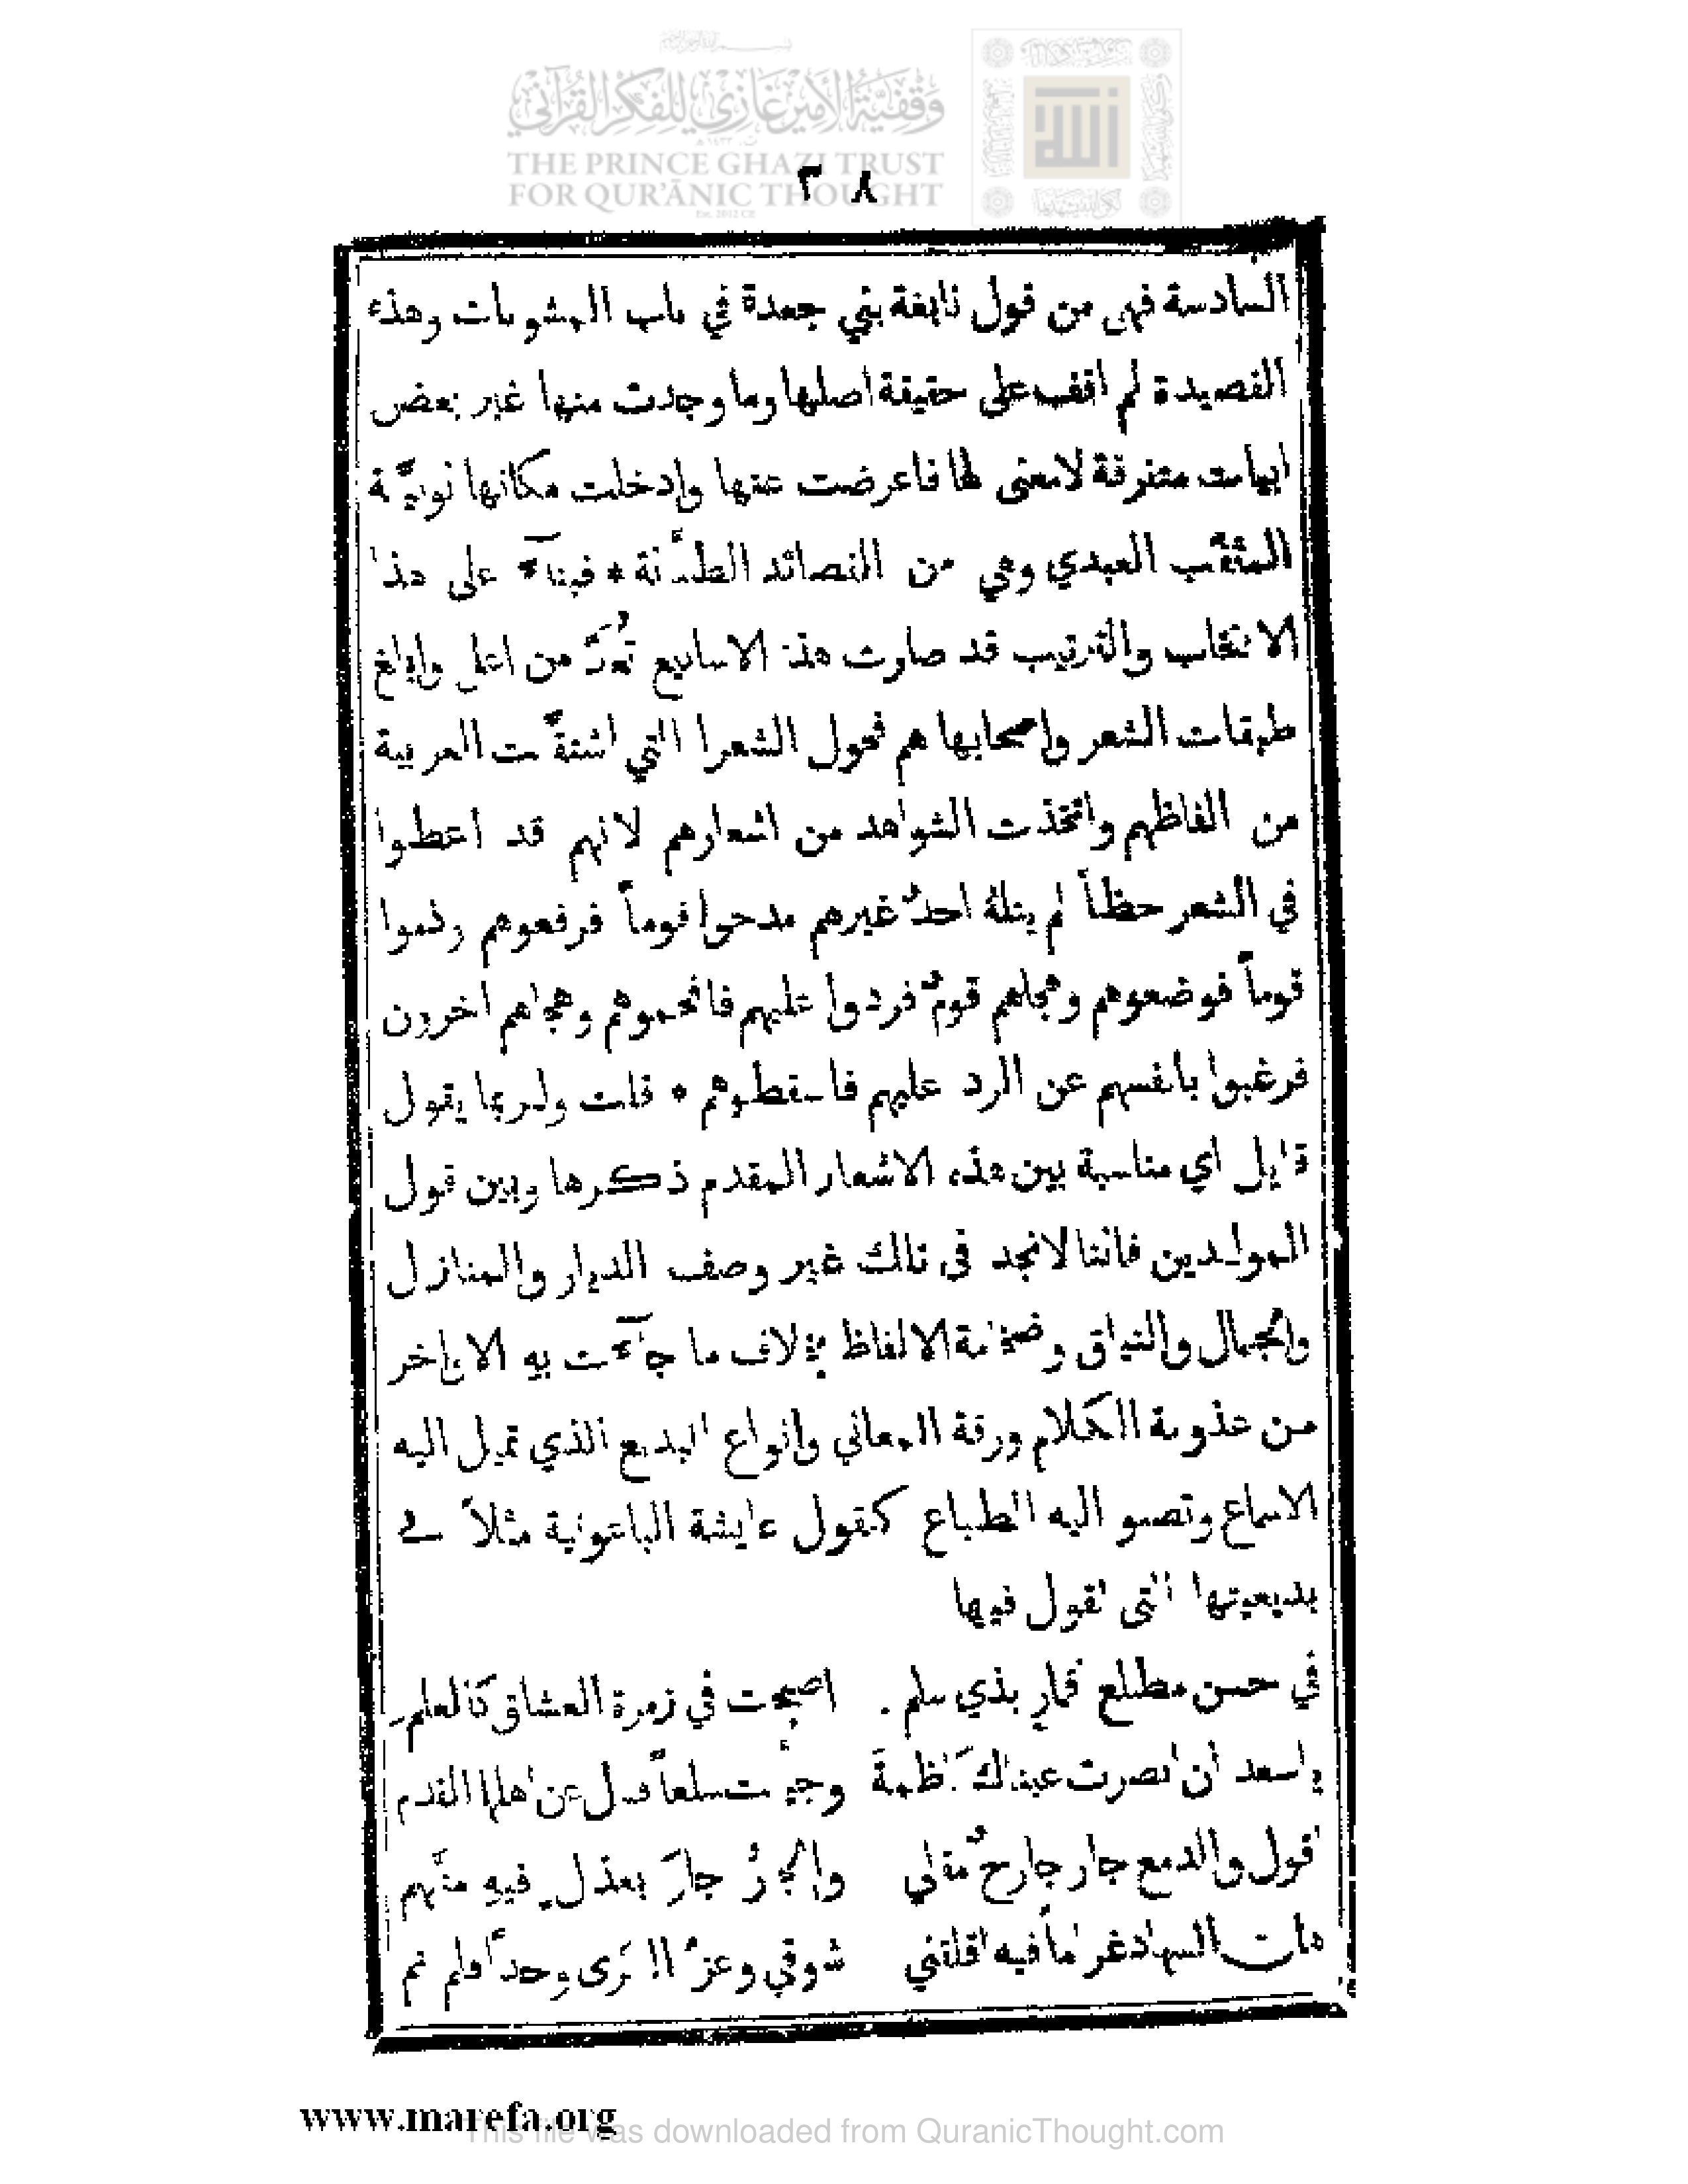 وقفية الأمير غازي للفكر القرآني
THE PRINCE GHAZI TRUST
FOR QUR'ĀNIC THOUGHT
Est. 2012 CE
٣٨
السادسة فهي من قول نابغة بني جعدة في باب المشوبات وهذه
القصيدة لم اقف على حقيقة اصلها وما وجدت منها غير بعض
ابيات متفرقة لا معنى لها فاعرضت عنها وادخلت مكانها نونيَّة
المثقّب العبدي وهي من القصائد الطنَّانة * فبنآءً على هذا
الانتخاب والترتيب قد صارت هذه الاسابيع تُعدّ من اعلى وابلغ
طبقات الشعر واصحابها هم فحول الشعرا التي اشتقَّت العربية
من الفاظهم واتخذت الشواهد من اشعارهم لانهم قد اعطوا
في الشعر حظاً لم ينلهُ احدٌ غيرهم مدحوا قوماً فرفعوهم وذموا
قوماً فوضعوهم وهجاهم قومٌ فردوا عليهم فافحموهم وهجاهم اخرون
فرغبوا بانفسهم عن الرد عليهم فاسقطوهم * قلت ولربما يقول
قايل اي مناسبة بين هذه الاشعار المقدم ذكرها وبين قول
المولدين فاننا لا نجد في تلك غير وصف الديار والمنازل
والجمال والنياق وضخامة الالفاظ بخلاف ما جآءت به الاواخر
من عذوبة الكلام ورقة المعاني وانواع البديع الذي تميل اليه
الاسماع وتصبو اليه الطباع كقول عايشة الباعونية مثلاً في
بديعيتها التي تقول فيها
في حسن مطلع اقمار بذي سلم . اصبحت في زمرة العشاق كالعلم
يا سعد ان ابصرت عيناك كاظمة وجئت سلعاً فسل عن اهلها القدم
اقول والدمع جار جارحٌ مقلي والجارُ جارَ بعذل فيه متّهم
شوقي وعزّ الكرى وجداً فلم نم
www.marefa.org
This file was downloaded from QuranicThought.com